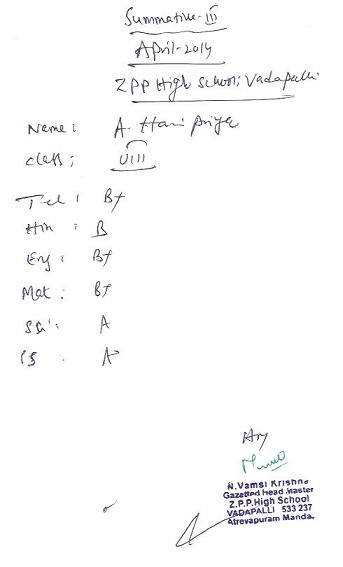 Summative-III
April-2014
ZPP High School; Vadapalli
Name: A. Hari priya
class: VIII
Tel: B+
Hin: B
Eng: B+
Mat: B+
Sci: A
A
N.Vamsi Krishna
Gazetted Head Master
Z.P.P.High School
VADAPALLI 533 237
Atreyapuram Manda.